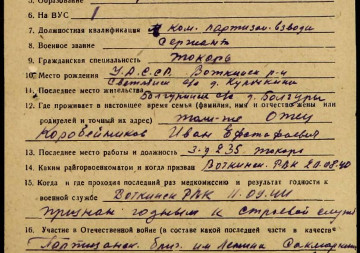 5. Образование
6. На ВУС 1
7. Должностная квалификация ком. партизан. взвода
8. Военное звание Сержант
9. Гражданская специальность токарь
10. Место рождения У.А.С.С.Р. Воткинск р-н
с/о д. Кулюшкино
11. Последнее место жительства Болгуринск с/о д. Болгуры
12. Где проживает в настоящее время семья (фамилия, имя и отчество жены или
родителей и точный их адрес) там-же Отец
Коробейников Иван Ефтафьевич
13. Последнее место работы и должность З-д 235 токарь
14. Каким райгорвоенкоматом и когда призван Воткинск. РВК 20.08.40
15. Когда и где проходил последний раз медкомиссию и результат годности к
военной службе Воткинск РВК 11.09.44
признан годным к строевой службе
16. Участие в Отечественной войне (в составе какой последней части в качестве
Партизанск. бриг. им Ленина